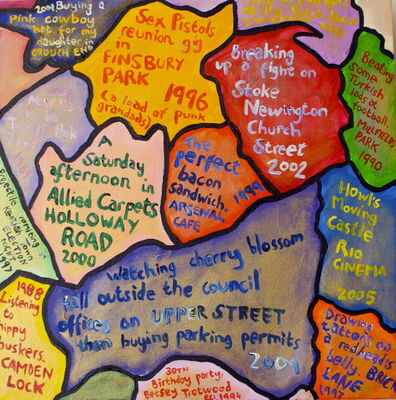 2001 Buying a
pink cowboy
hat for my
daughter in
CROUCH END
Sex Pistols
reunion gig
in
FINSBURY
PARK 1996
(a load of punk
grandads)
Breaking
up a fight on
Stoke
Newington
Church
Street
2002
Beating
some
turkish
kids at
football.
HIGHBURY FIELDS
PARK
1990
A
Saturday
afternoon in
Allied Carpets
HOLLOWAY
ROAD
2000
The
perfect
bacon
sandwich.
ARSENAL
CAFE
1999
Howl's
Moving
Castle
RIO
CINEMA
2005
Projectile vomiting in
ELECTION
NIGHT
1997
Watching cherry blossom
fall outside the council
offices on UPPER STREET
then buying parking permits
2004
1988
Listening
to
hippy
buskers.
CAMDEN
LOCK
30TH
Birthday party,
Betsey Trotwood
EC1 1994
Drawing
tattoos on
a redhead's
belly. BRICK
LANE
1997